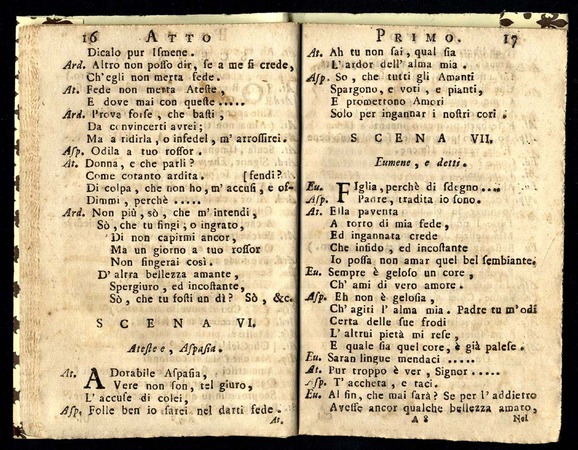 16 ATTO
Dicalo pur Ismene.
Ard. Altro non posso dir, se a me si crede,
Ch'egli non merta fede.
At. Fede non merta Ateste,
E dove mai con queste .....
Ard. Prova forse, che basti,
Da convincerti avrei;
Ma a ridirla, o infedel, m'arrossirei.
Asp. Odila a tuo rossor.
At. Donna, e che parli?
Come cotanto ardita. [fendi?
Di colpa, che non ho, m'accusi, e of-
Dimmi, perchè .....
Ard. Non più, sò, che m'intendi,
Sò, che tu fingi, o ingrato,
Di non capirmi ancor,
Ma un giorno a tuo rossor
Non fingerai così.
D'altra bellezza amante,
Spergiuro, ed incostante,
Sò, che tu fosti un dì? Sò, &c.
SCENA VI.
Ateste e, Aspasia.
At. ADorabile Aspasia,
Vere non son, tel giuro,
L'accuse di colei,
Asp. Folle ben io sarei nel darti fede.
At.
PRIMO. 17
At. Ah tu non sai, qual sia
L'ardor dell'alma mia.
Asp. So, che tutti gli Amanti
Spargono, e voti, e pianti,
E promettono Amori
Solo per ingannar i nostri cori.
SCENA VII.
Eumene, e detti.
Eu. FIglia, perchè di sdegno ....
Asp. Padre, tradita io sono.
At. Ella paventa
A torto di mia fede,
Ed ingannata crede
Che infido, ed incostante
Io possa non amar quel bel sembiante.
Eu. Sempre è geloso un core,
Ch'ami di vero amore.
Asp. Eh non è gelosia,
Ch'agiti l'alma mia. Padre tu m'odi
Certa delle sue frodi
L'altrui pietà mi rese,
E quale sia quel core, è già palese.
Eu. Saran lingue mendaci .....
At. Pur troppo è ver, Signor .....
Asp. T'accheta, e taci.
Eu. Al fin, che mai sarà? Se per l'addietro
Avesse ancor qualche bellezza amato,
A 8 Nel